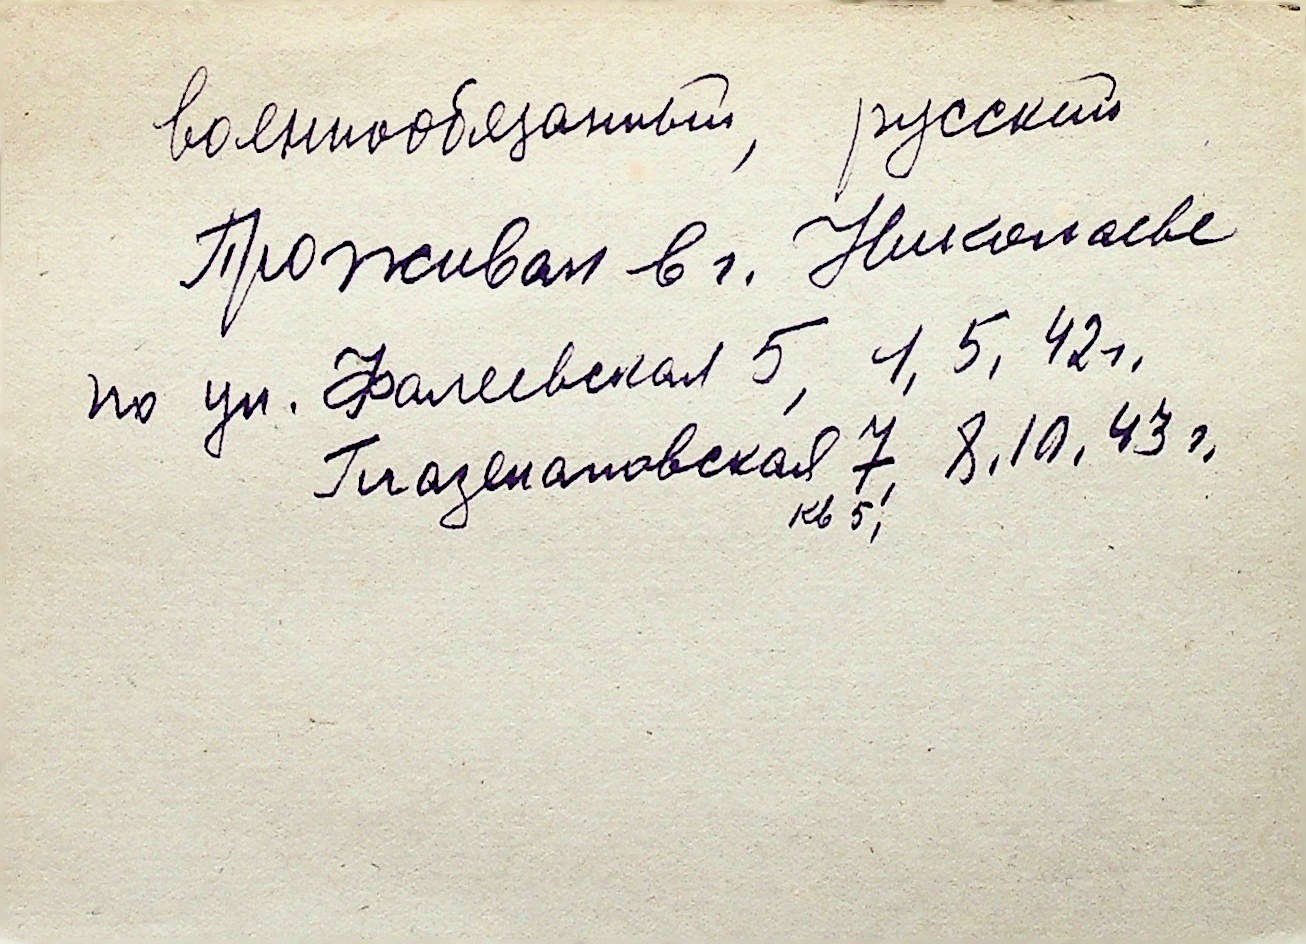 военнообязанный, русский
Проживал в г. Николаеве
по ул. Фалеевская 5, 1, 5, 42 г.
Глазенаповская 7, 8. 10. 43 г.
кв 5,